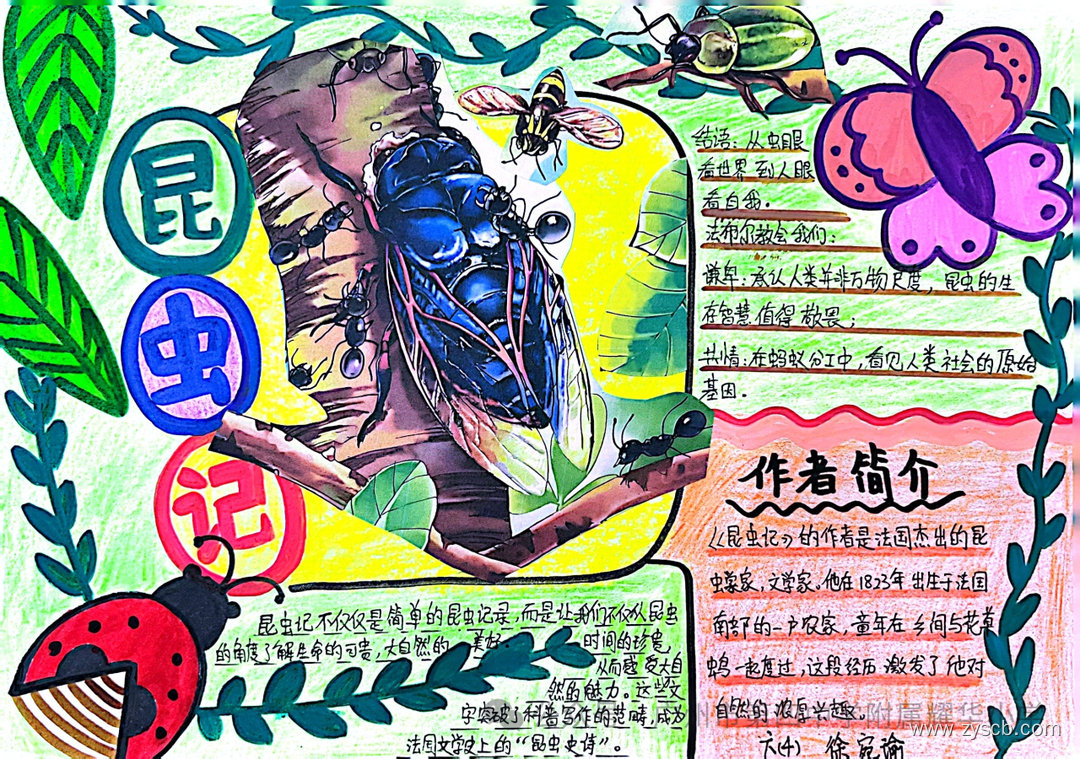 昆
虫
记
结语：从虫眼
看世界到人眼
看自我。
法布尔教会我们：
谦卑：承认人类并非万物尺度，昆虫的生
存智慧值得敬畏；
共情：在蚂蚁分工中，看见人类社会的原始
基因。
作者简介
《昆虫记》的作者是法国杰出的昆
虫学家，文学家。他在1823年出生于法国
南部的一户农家，童年在乡间与花草
虫鸟一起度过，这段经历激发了他对
自然的浓厚兴趣。
六(4) 徐宛谕
昆虫记不仅仅是简单的昆虫记录，而是让我们不仅从昆虫
的角度了解生命的可贵，大自然的美好。时间的珍贵，
从而感受大自
然的魅力。这些文
字突破了科普写作的范畴，成为
法国文学史上的“昆虫史诗”。
附属耀华
www.zyscb.com